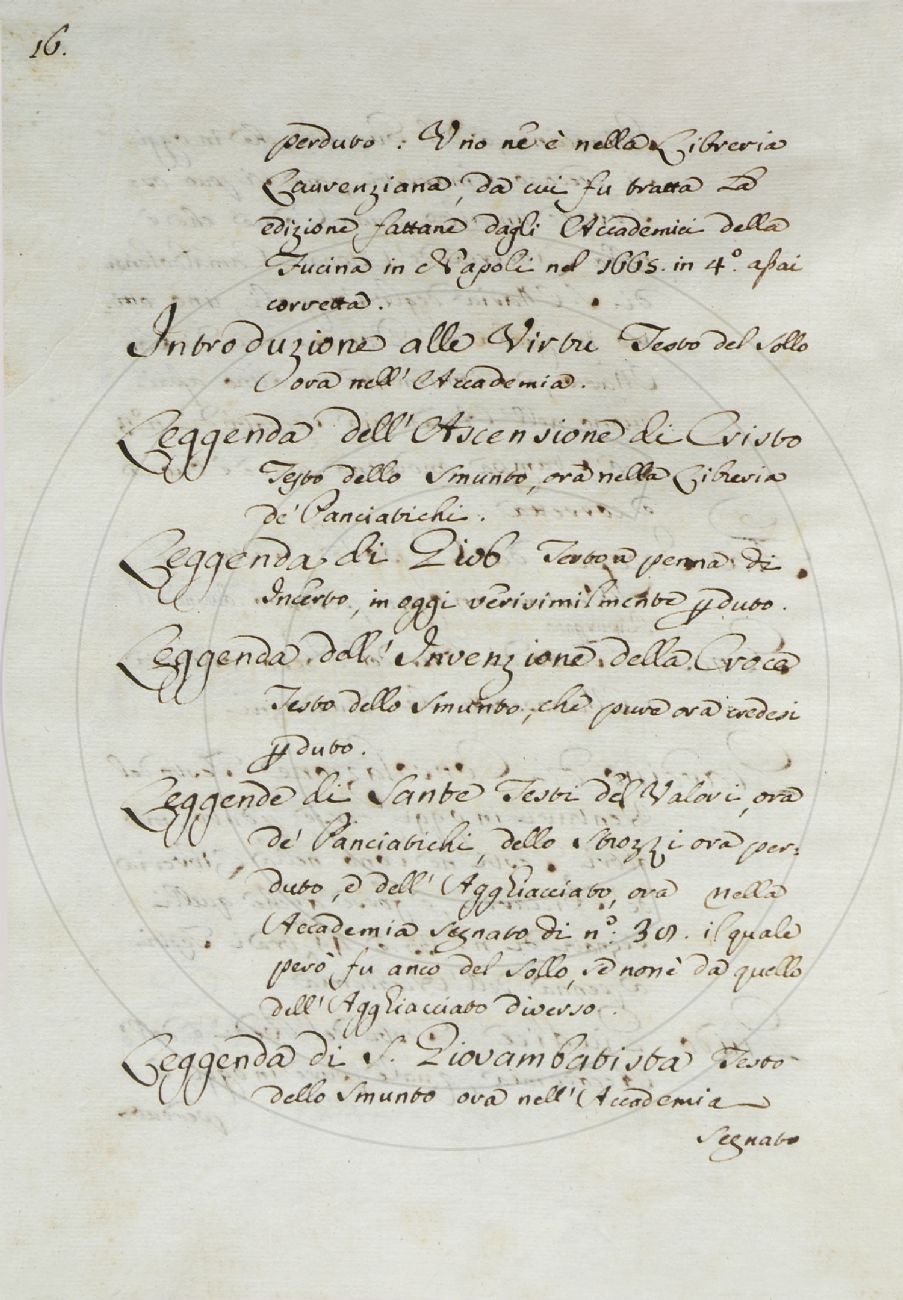 16.
perduto : Uno ne è nella Libreria
Laurenziana, da cui fu tratta la
edizione fattane dagli Accademici della
Fucina in Napoli nel 1665. in 4°. assai
corretta.
Introduzione alle Virtu Testo del Sollo
ora nell' Accademia.
Leggenda dell' Ascensione di Cristo
Testo dello Smunto, ora nella Libreria
de' Panciatichi.
Leggenda di Giob Testo a penna di
Incerto, in oggi verisimilmente perduto.
Leggenda dell' Invenzione della Croce
Testo dello Smunto, che pure ora credesi
perduto.
Leggende di Sante Testi del Valori, ora
de' Panciatichi, dello Strozzi ora per:
duto, e dell' Agghiacciato, ora nella
Accademia segnato di n°. 38. il quale
però fu anco del Sollo, se non è da quello
dell' Agghiacciato diverso.
Leggenda di S. Giovambatista Testo
dello Smunto ora nell' Accademia
segnato